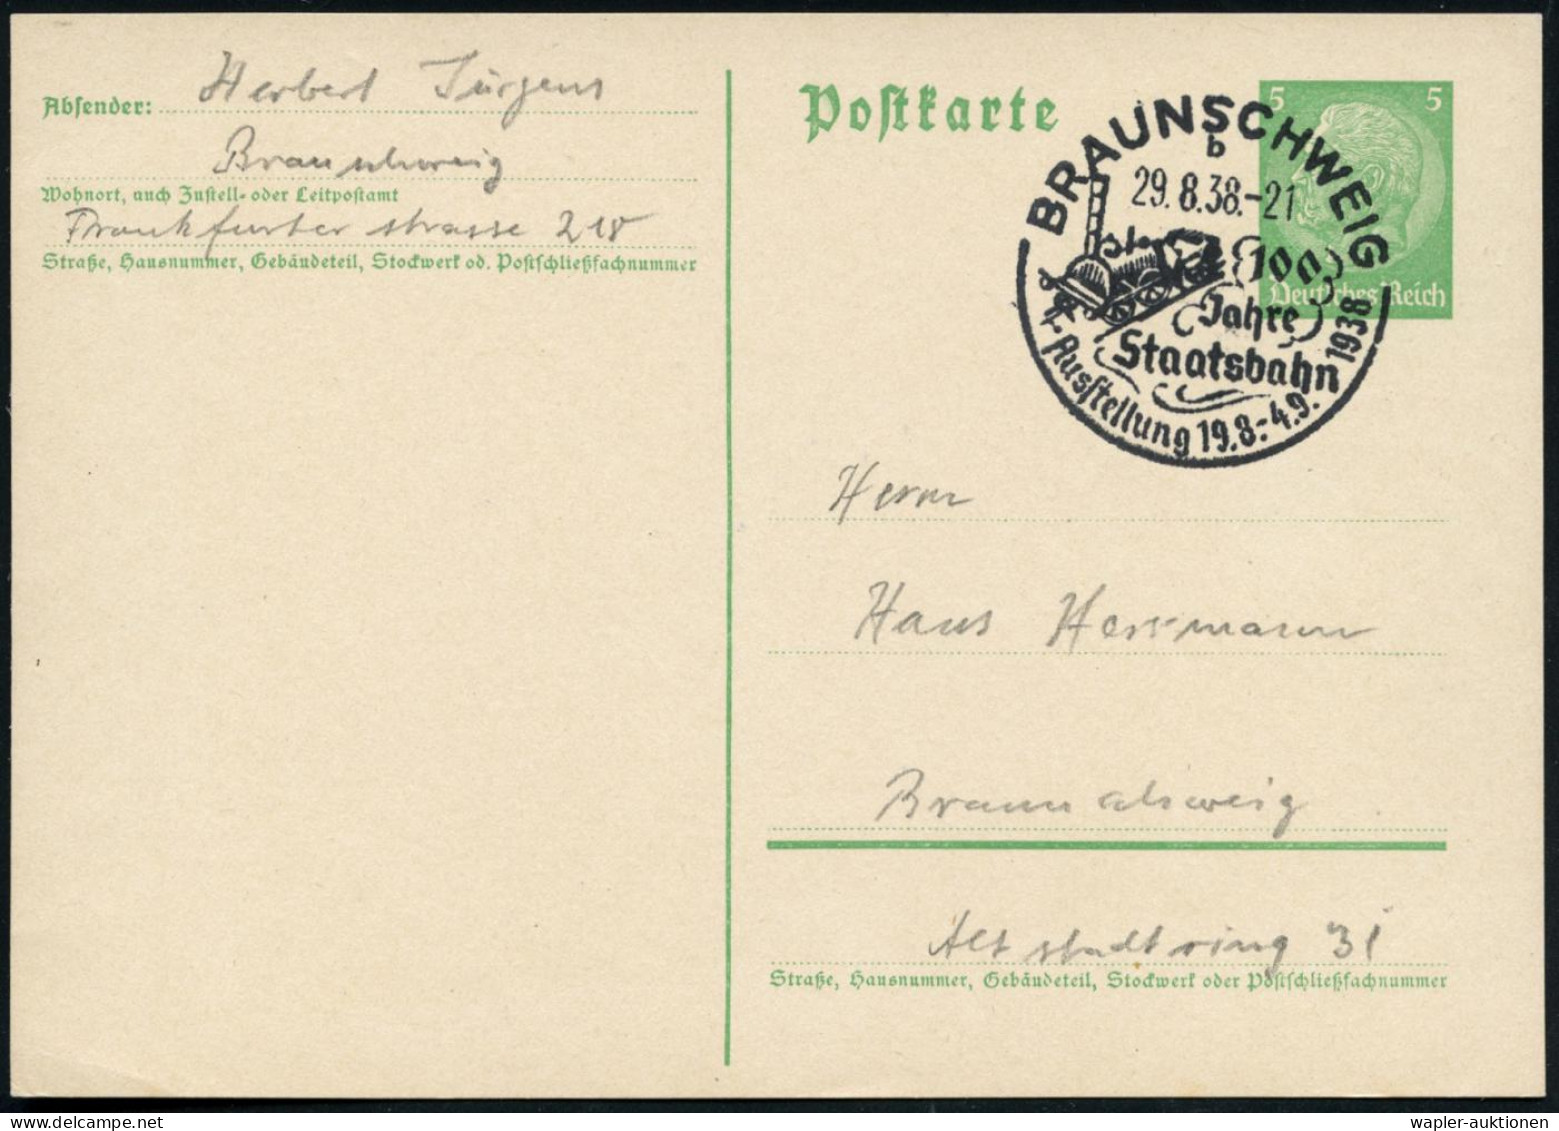 Absender: Herbert Jürgens
Braunschweig
Wohnort, auch Zustell- oder Leitpostamt
Frankfurter strasse 218
Straße, Hausnummer, Gebäudeteil, Stockwerk od. Postschließfachnummer
Postkarte
5 5
Deutsches Reich
BRAUNSCHWEIG
b
29.8.38.-21
100
Jahre
Staatsbahn
Ausstellung 19.8.-4.9. 1938
Herrn
Hans Herrmann
Braunschweig
Altstadtring 31
Straße, Hausnummer, Gebäudeteil, Stockwerk oder Postschließfachnummer
wapler-auktionen